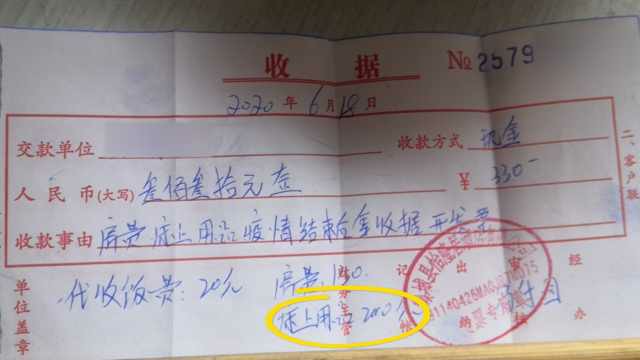 收据
№ 2579
2020 年 6 月 18 日
交款单位 收款方式 现金
人民币(大写) 叁佰叁拾元整 ¥ 330-
收款事由 房费 床上用品 疫情结束后拿收据开发票
代收饭费:20元 房费:130
床上用品 200元
单位盖章 财务主管 记账 出纳 经办
二、客户联